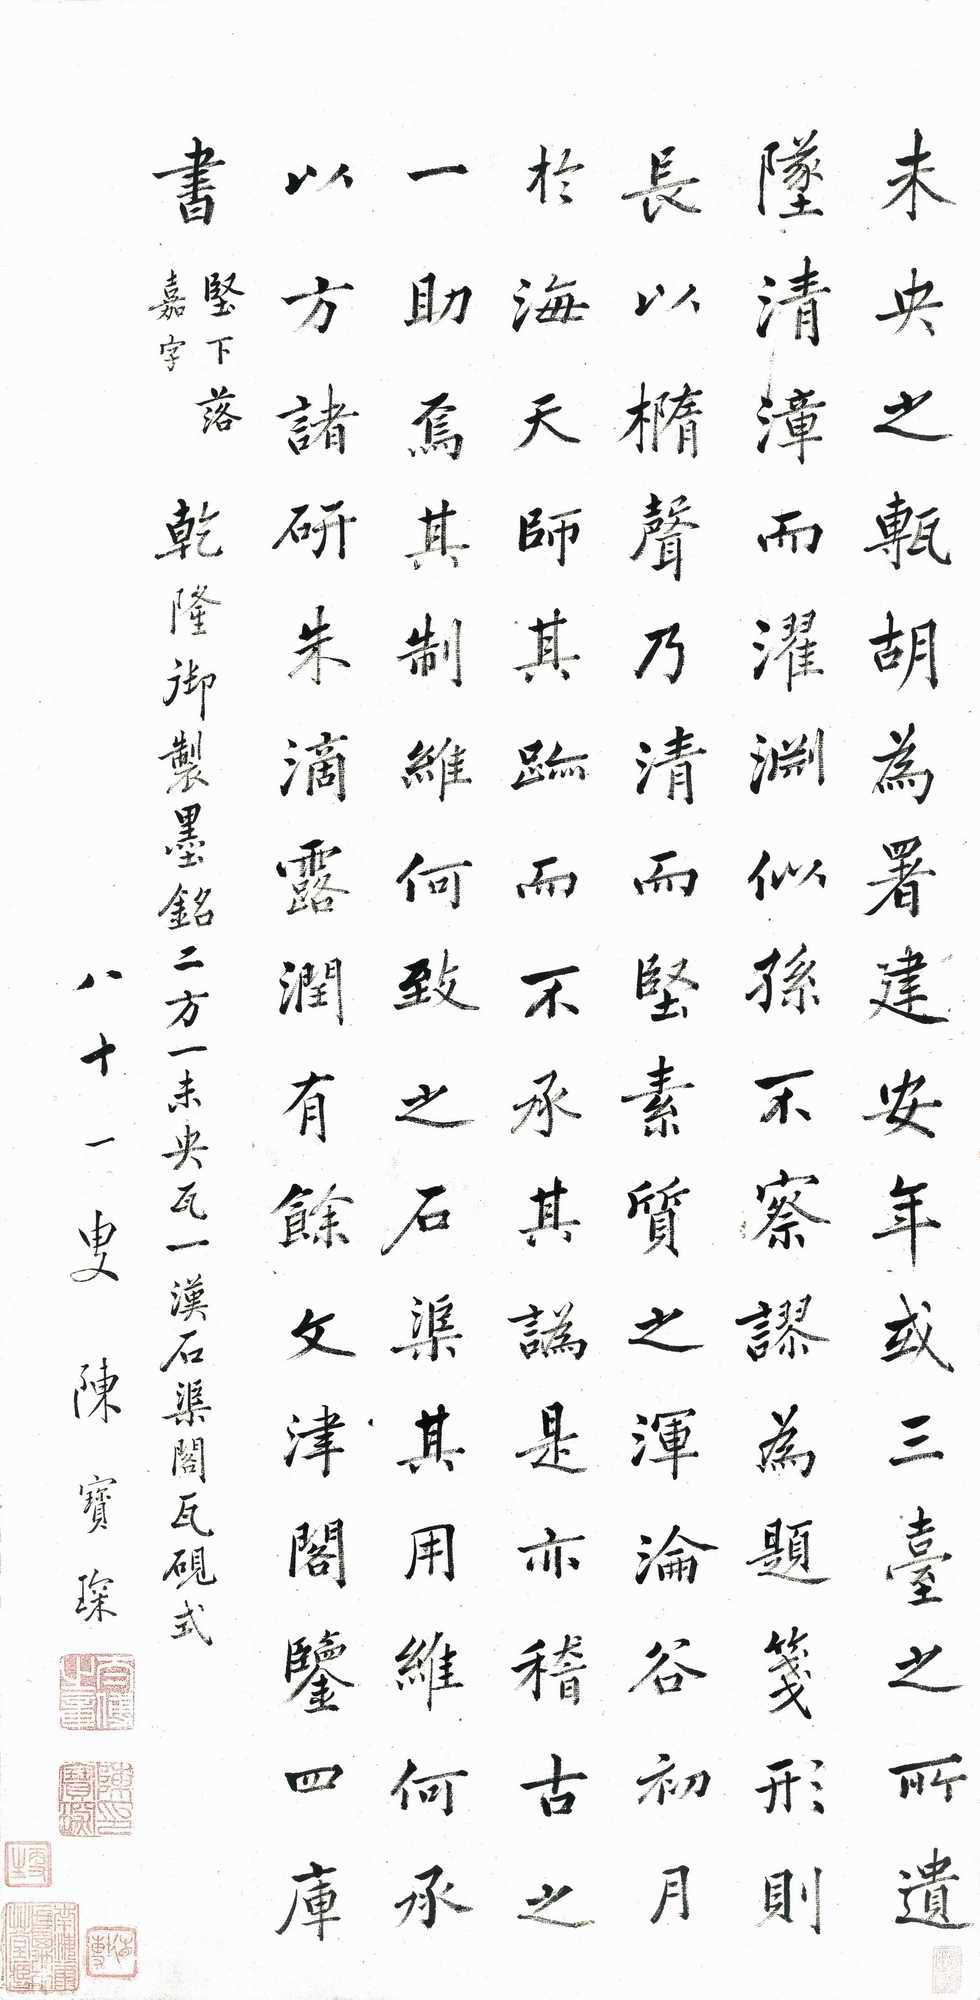 未央之甎胡為署建安年或三臺之所遺
墜清漳而濯淵似孫不察謬為題箋形則
長以橢聲乃清而堅素質之渾淪谷初月
於海天師其跡而不承其譌是亦稽古之
一助焉其制維何致之石渠其用維何承
以方諸研朱滴露潤有餘文津閣鑒四庫
書
堅下落
嘉字
乾隆御製墨銘二方一未央瓦一漢石渠閣瓦硯式
八十一叟陳寶琛
陳寶琛印